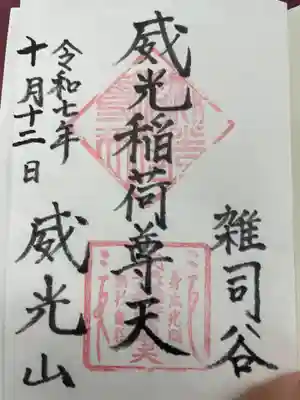 雑司谷
威光稲荷尊天
威光山
令和七年
十月十二日